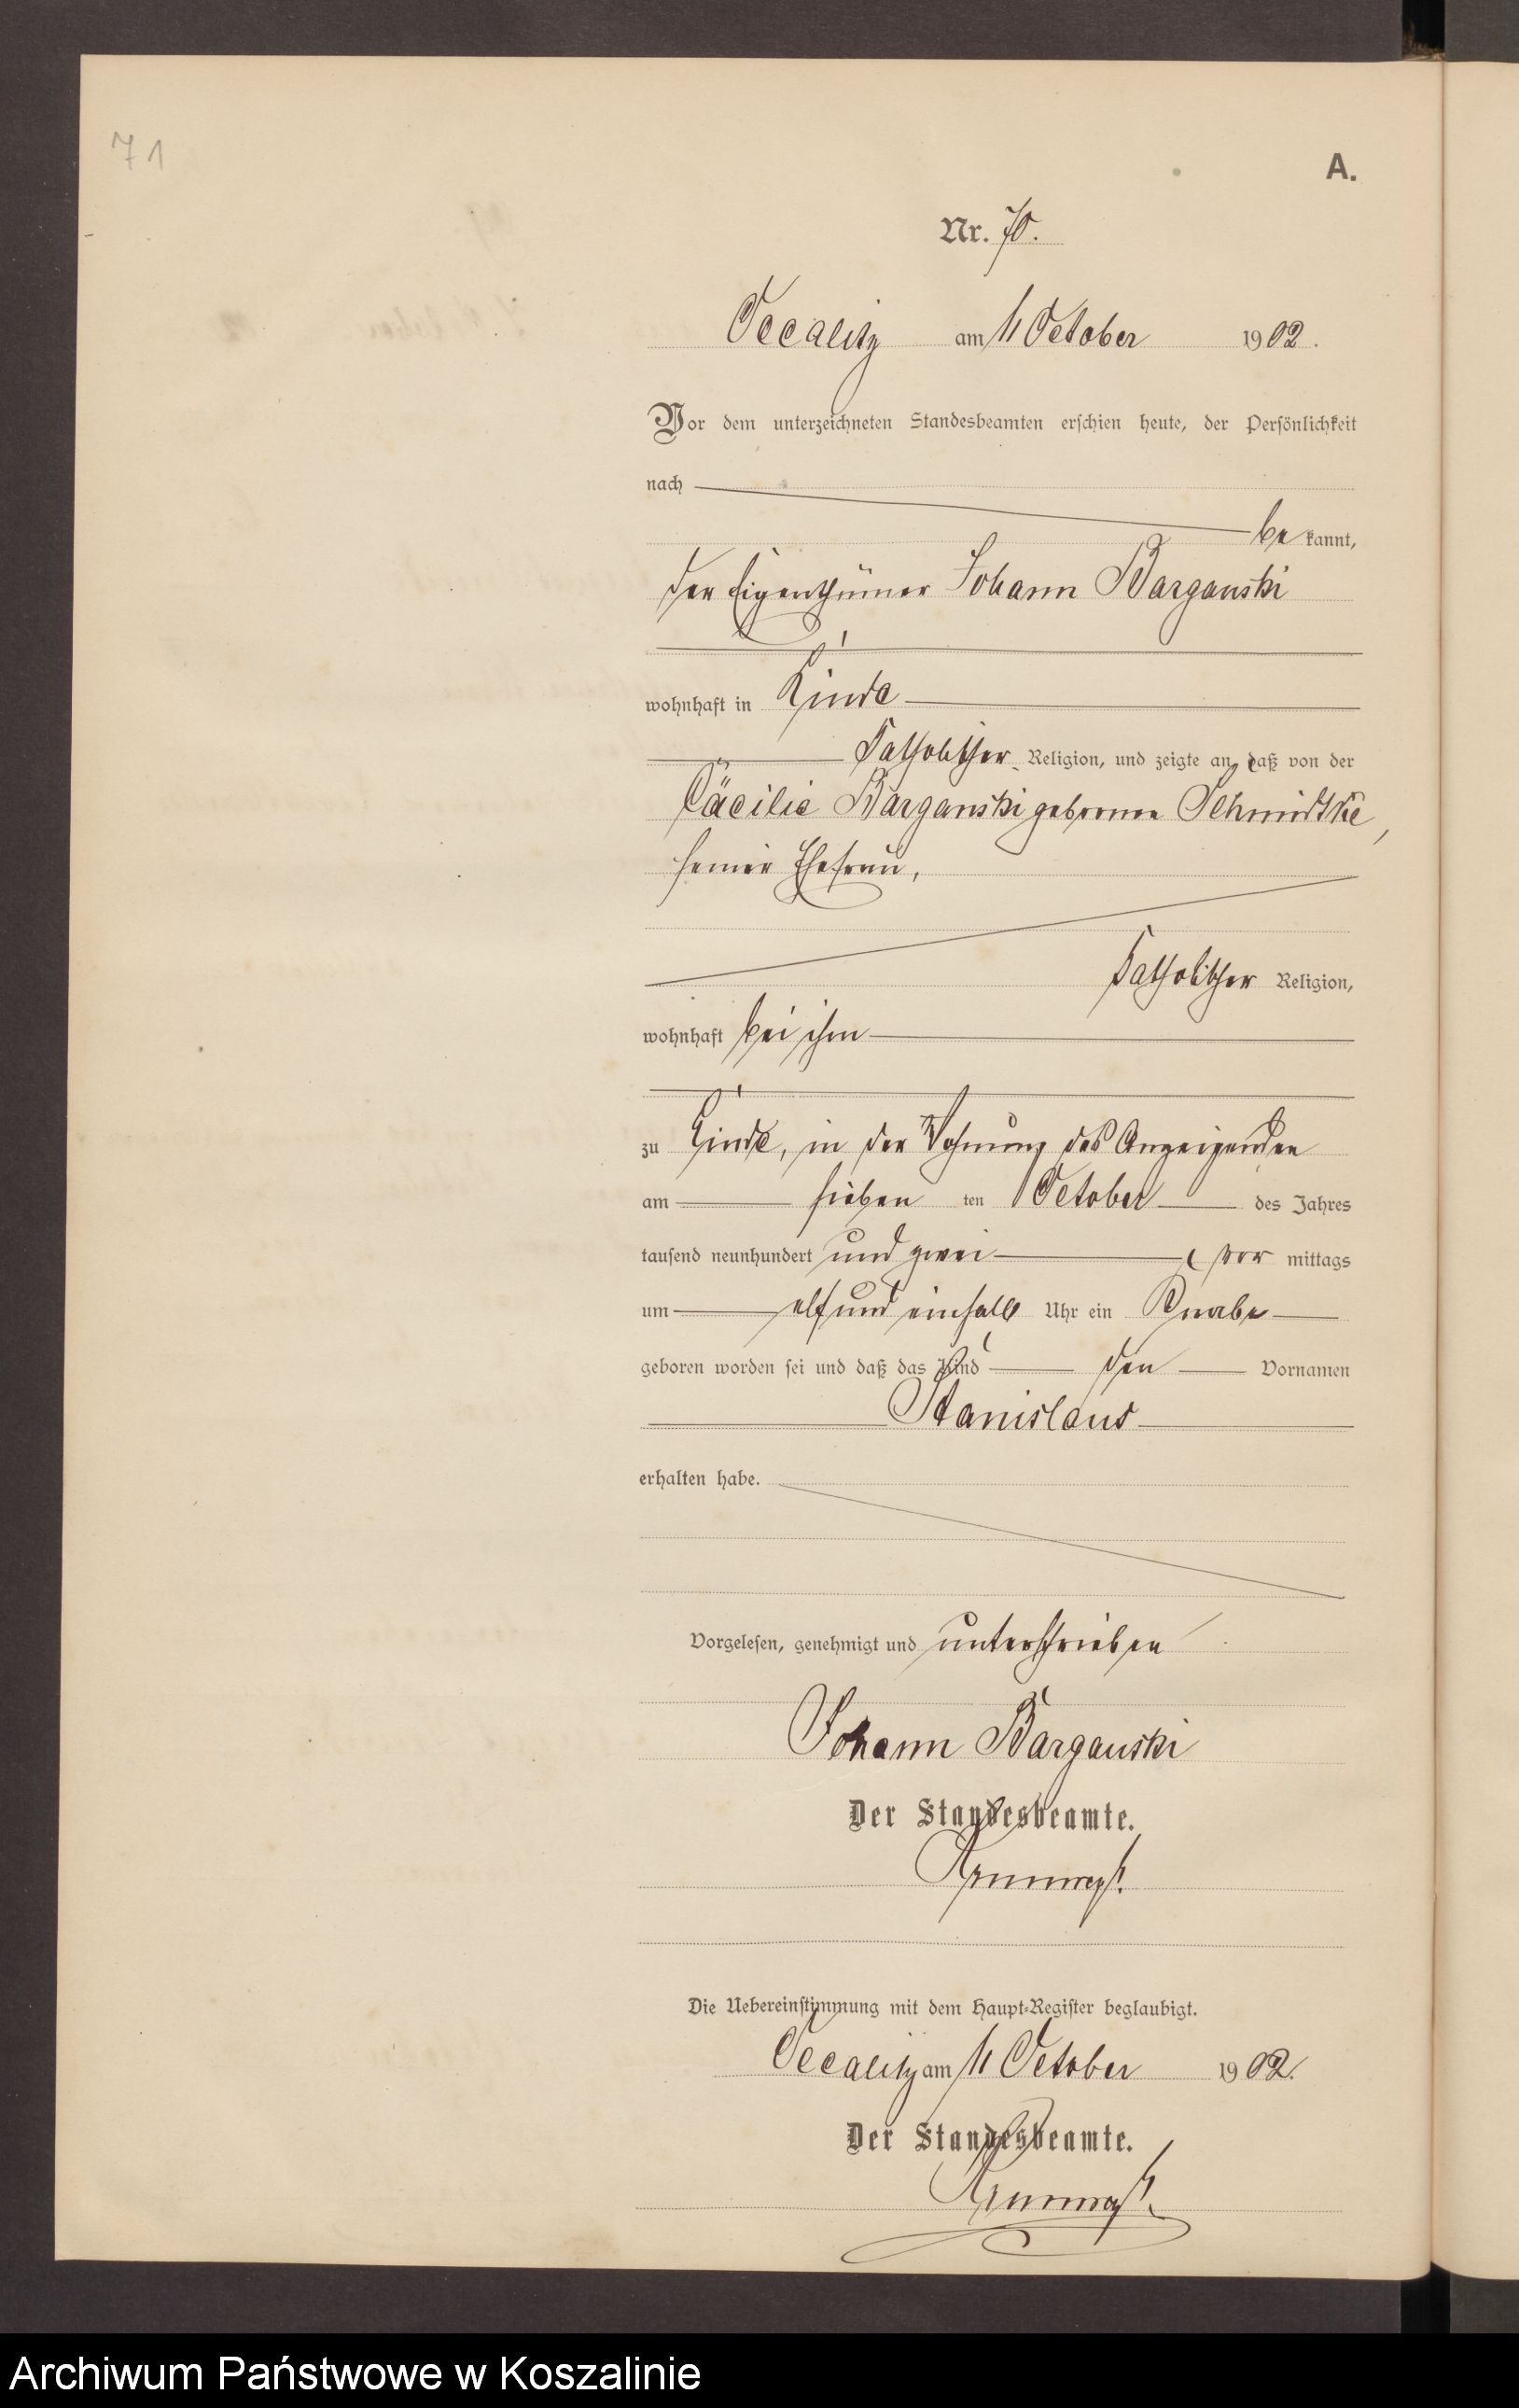 71
A.
Nr. 70.
Oecalitz am 11 October 1902.
Vor dem unterzeichneten Standesbeamten erschien heute, der Persönlichkeit
nach
be kannt,
der Eigenthümer Johann Barganski
wohnhaft in Linde
katholischer Religion, und zeigte an, daß von der
Cäcilie Barganski geborenen Schmidtke,
seiner Ehefrau,
katholischer Religion,
wohnhaft bei ihm
zu Linde, in der Wohnung des Anzeigenden
am sieben ten October des Jahres
tausend neunhundert und zwei, vor mittags
um elf und einhalb Uhr ein Knabe
geboren worden sei und daß das Kind den Vornamen
Stanislaus
erhalten habe.
Vorgelesen, genehmigt und unterschrieben
Johann Barganski
Der Standesbeamte.
Die Uebereinstimmung mit dem Haupt-Register beglaubigt.
Oecalitz am 11 October 1902.
Der Standesbeamte.
Archiwum Państwowe w Koszalinie